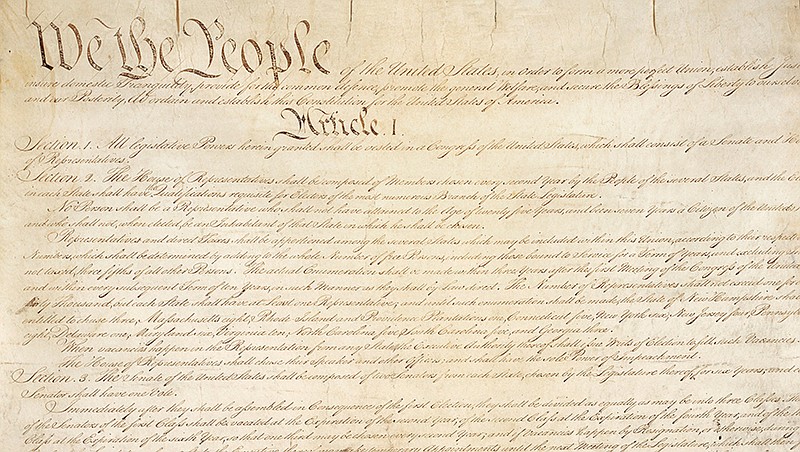 We the People of the United States, in Order to form a more perfect Union, establish Jus
insure domestic Tranquility, provide for the common defence, promote the general Welfare, and secure the Blessings of Liberty to oursel
and our Posterity, do ordain and establish this Constitution for the United States of America.
Article. I.
Section. 1. All legislative Powers herein granted shall be vested in a Congress of the United States, which shall consist of a Senate and Ho
of Representatives.
Section. 2. The House of Representatives shall be composed of Members chosen every second Year by the People of the several States, and the El
in each State shall have Qualifications requisite for Electors of the most numerous Branch of the State Legislature.
No Person shall be a Representative who shall not have attained to the Age of twenty five Years, and been seven Years a Citizen of the United
and who shall not, when elected, be an Inhabitant of that State in which he shall be chosen.
Representatives and direct Taxes shall be apportioned among the several States which may be included within this Union, according to their respect
Numbers, which shall be determined by adding to the whole Number of free Persons, including those bound to Service for a Term of Years, and excluding
not taxed, three fifths of all other Persons. The actual Enumeration shall be made within three Years after the first Meeting of the Congress of the United
and within every subsequent Term of ten Years, in such Manner as they shall by Law direct. The Number of Representatives shall not exceed one for
thirty Thousand, but each State shall have at Least one Representative; and until such enumeration shall be made, the State of New Hampshire shall
entitled to chuse three, Massachusetts eight, Rhode Island and Providence Plantations one, Connecticut five, New York six, New Jersey four, Pennsylv
eight, Delaware one, Maryland six, Virginia ten, North Carolina five, South Carolina five, and Georgia three.
When vacancies happen in the Representation from any State, the Executive Authority thereof shall issue Writs of Election to fill such Vacancies.
The House of Representatives shall chuse their Speaker and other Officers; and shall have the sole Power of Impeachment.
Section. 3. The Senate of the United States shall be composed of two Senators from each State, chosen by the Legislature thereof, for six Years; and
Senator shall have one Vote.
Immediately after they shall be assembled in Consequence of the first Election, they shall be divided as equally as may be into three Classes. The
of the Senators of the first Class shall be vacated at the Expiration of the second Year, of the second Class at the Expiration of the fourth Year, and of the
Class at the Expiration of the sixth Year, so that one third may be chosen every second Year; and if Vacancies happen by Resignation, or otherwise, during
temporary Appointments until the next Meeting of the Legislature, which shall then